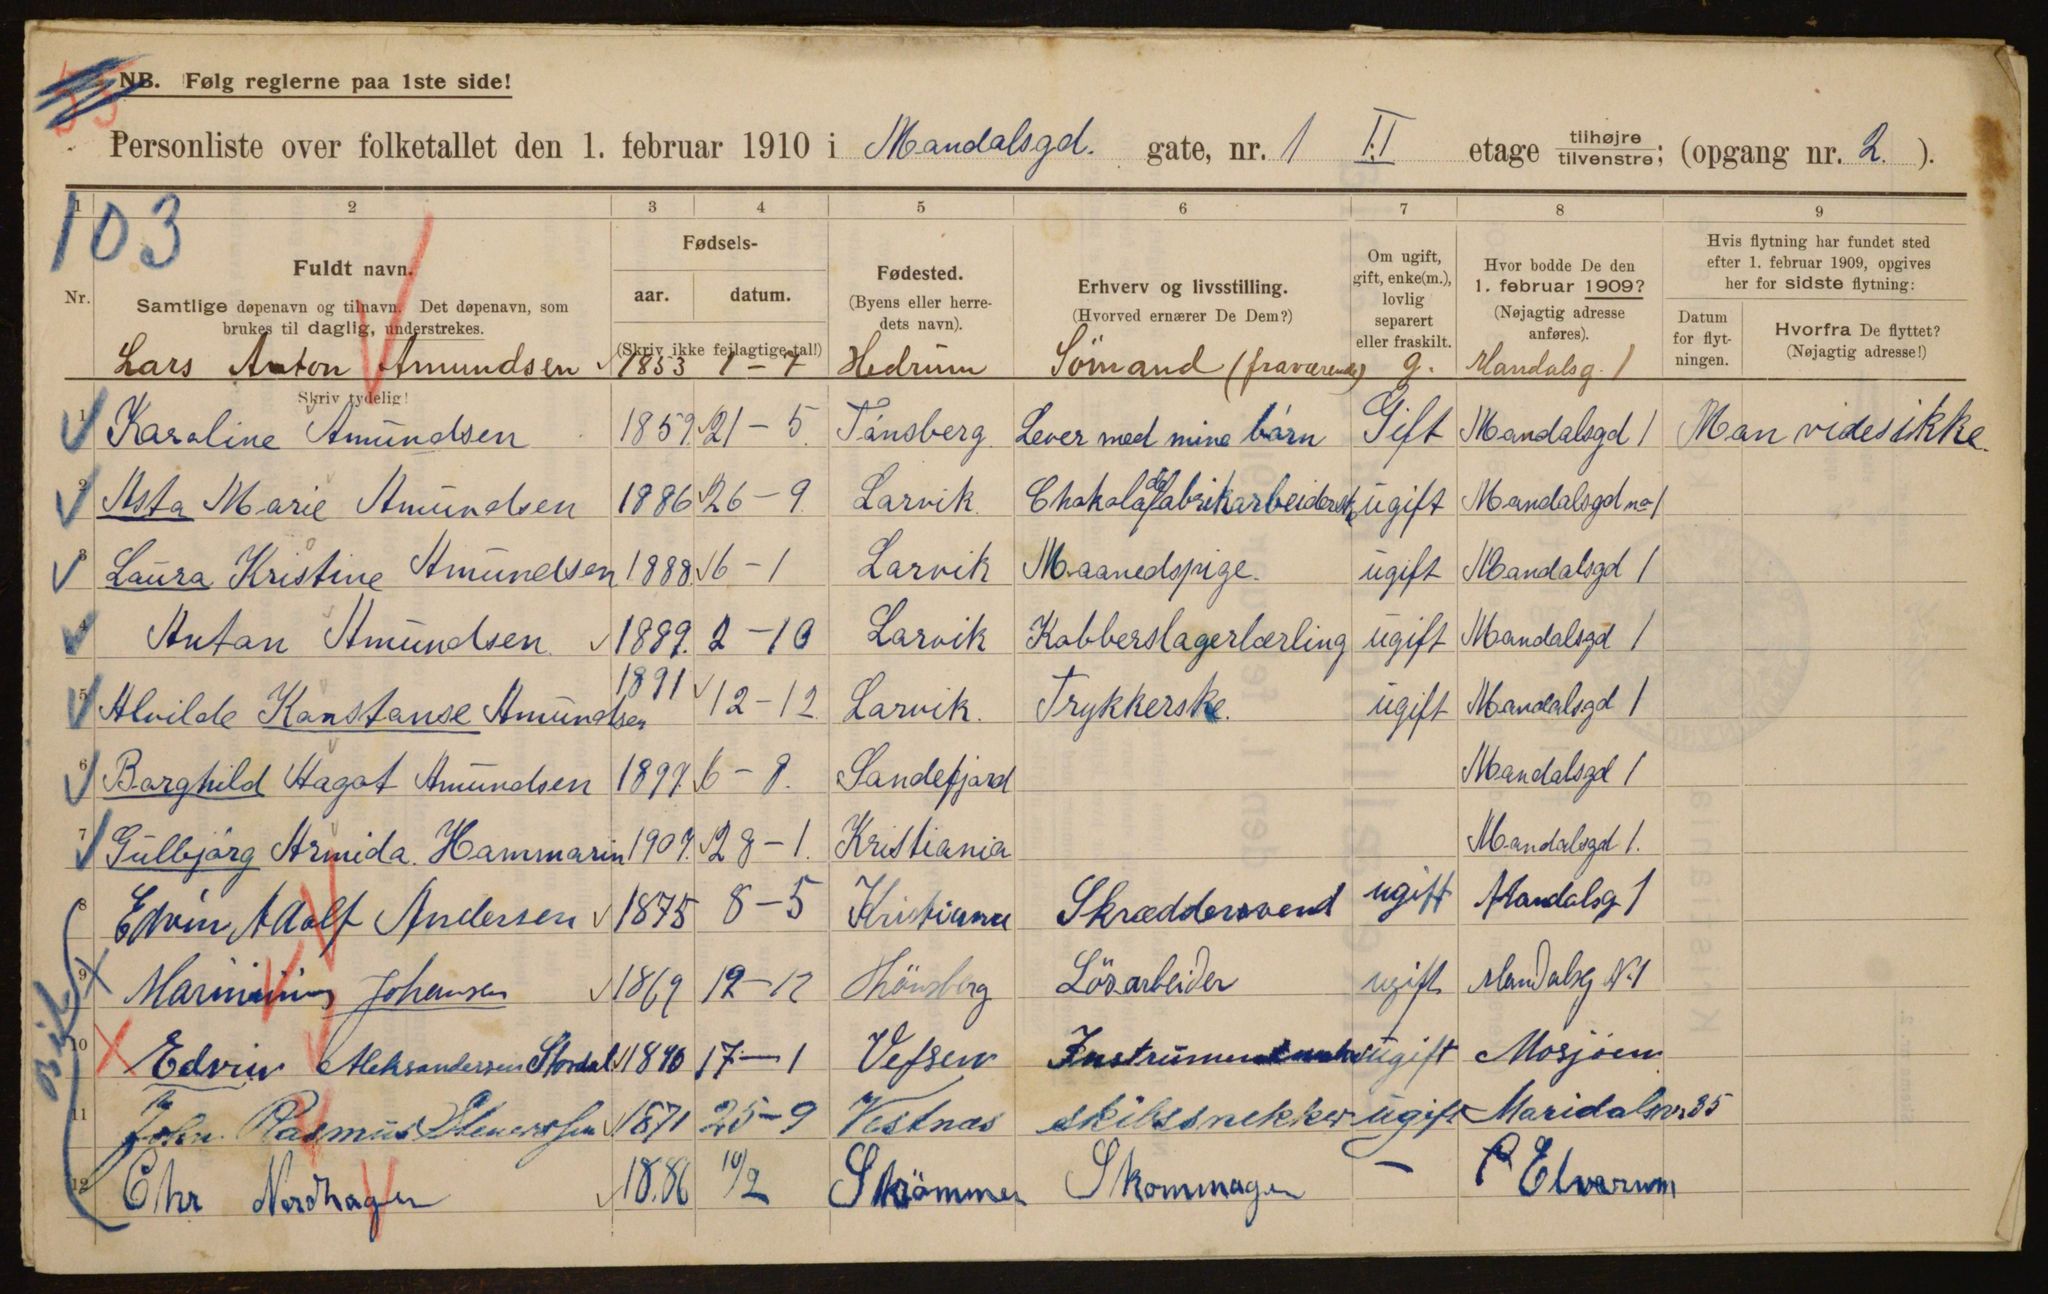 NB. Følg reglerne paa 1ste side!
Personliste over folketallet den 1. februar 1910 i Mandalsgd. gate, nr. 1 II etage tilhøjre tilvenstre; (opgang nr. 2. ).
1 2 3 4 5 6 7 8 9
103
Nr.
Fuldt navn.
Samtlige døpenavn og tilnavn. Det døpenavn, som
brukes til daglig, understrekes.
Skriv tydelig!
Fødsels-
aar. datum.
(Skriv ikke fejlagtige tal!)
Fødested.
(Byens eller herre-
dets navn).
Erhverv og livsstilling.
(Hvorved ernærer De Dem?)
Om ugift,
gift, enke(m.),
lovlig
separert
eller fraskilt.
Hvor bodde De den
1. februar 1909?
(Nøjagtig adresse
anføres).
Hvis flytning har fundet sted
efter 1. februar 1909, opgives
her for sidste flytning:
Datum
for flyt-
ningen.
Hvorfra De flyttet?
(Nøjagtig adresse!)
Lars Anton Amundsen 1853 1-7 Hedrum Sömand (fraværende) g. Mandalsg. 1
1 Karoline Amundsen 1859. 21-5. Tönsberg. Lever med mine börn Gift Mandalsgd 1 Man vides ikke.
2 Asta Marie Amundsen 1886 26-9. Larvik. Chokoladefabrikarbeiderske ugift Mandalsgd no 1
3 Laura Kristine Amundsen 1888. 6-1 Larvik Maanedspige. ugift Mandalsgd 1
4 Anton Amundsen. 1889. 2-10 Larvik Kobberslagerlærling ugift Mandalsgd 1
5 Alvilde Konstanse Amundsen 1891 12-12. Larvik. Trykkerske. ugift Mandalsgd 1
6 Borghild Hagot Amundsen 1897. 6-8. Sandefjord Mandalsgd 1
7 Gulbjörg Armida. Hammarin 1907. 28-1. Kristiania Mandalsgd 1.
8 Edvin Adolf Andersen 1875 8-5 Kristiania Skræddersvend ugift Mandalsg 1
9 Johansen 1869 12-12 Lösarbeider ugift Mandalsg N.1
10 Edvin Aleksandersen Stordal 17-1 Vefsen ugift Mosjöen
11 John Rasmus 1871 25-9 Vestnes skibssnekker ugift Maridalsv. 35
12 Chr Nordhagen 18.86 10/2 Skommager - Elverum